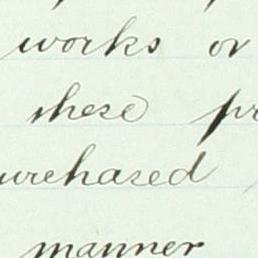 works or
these pr
urchased
manner